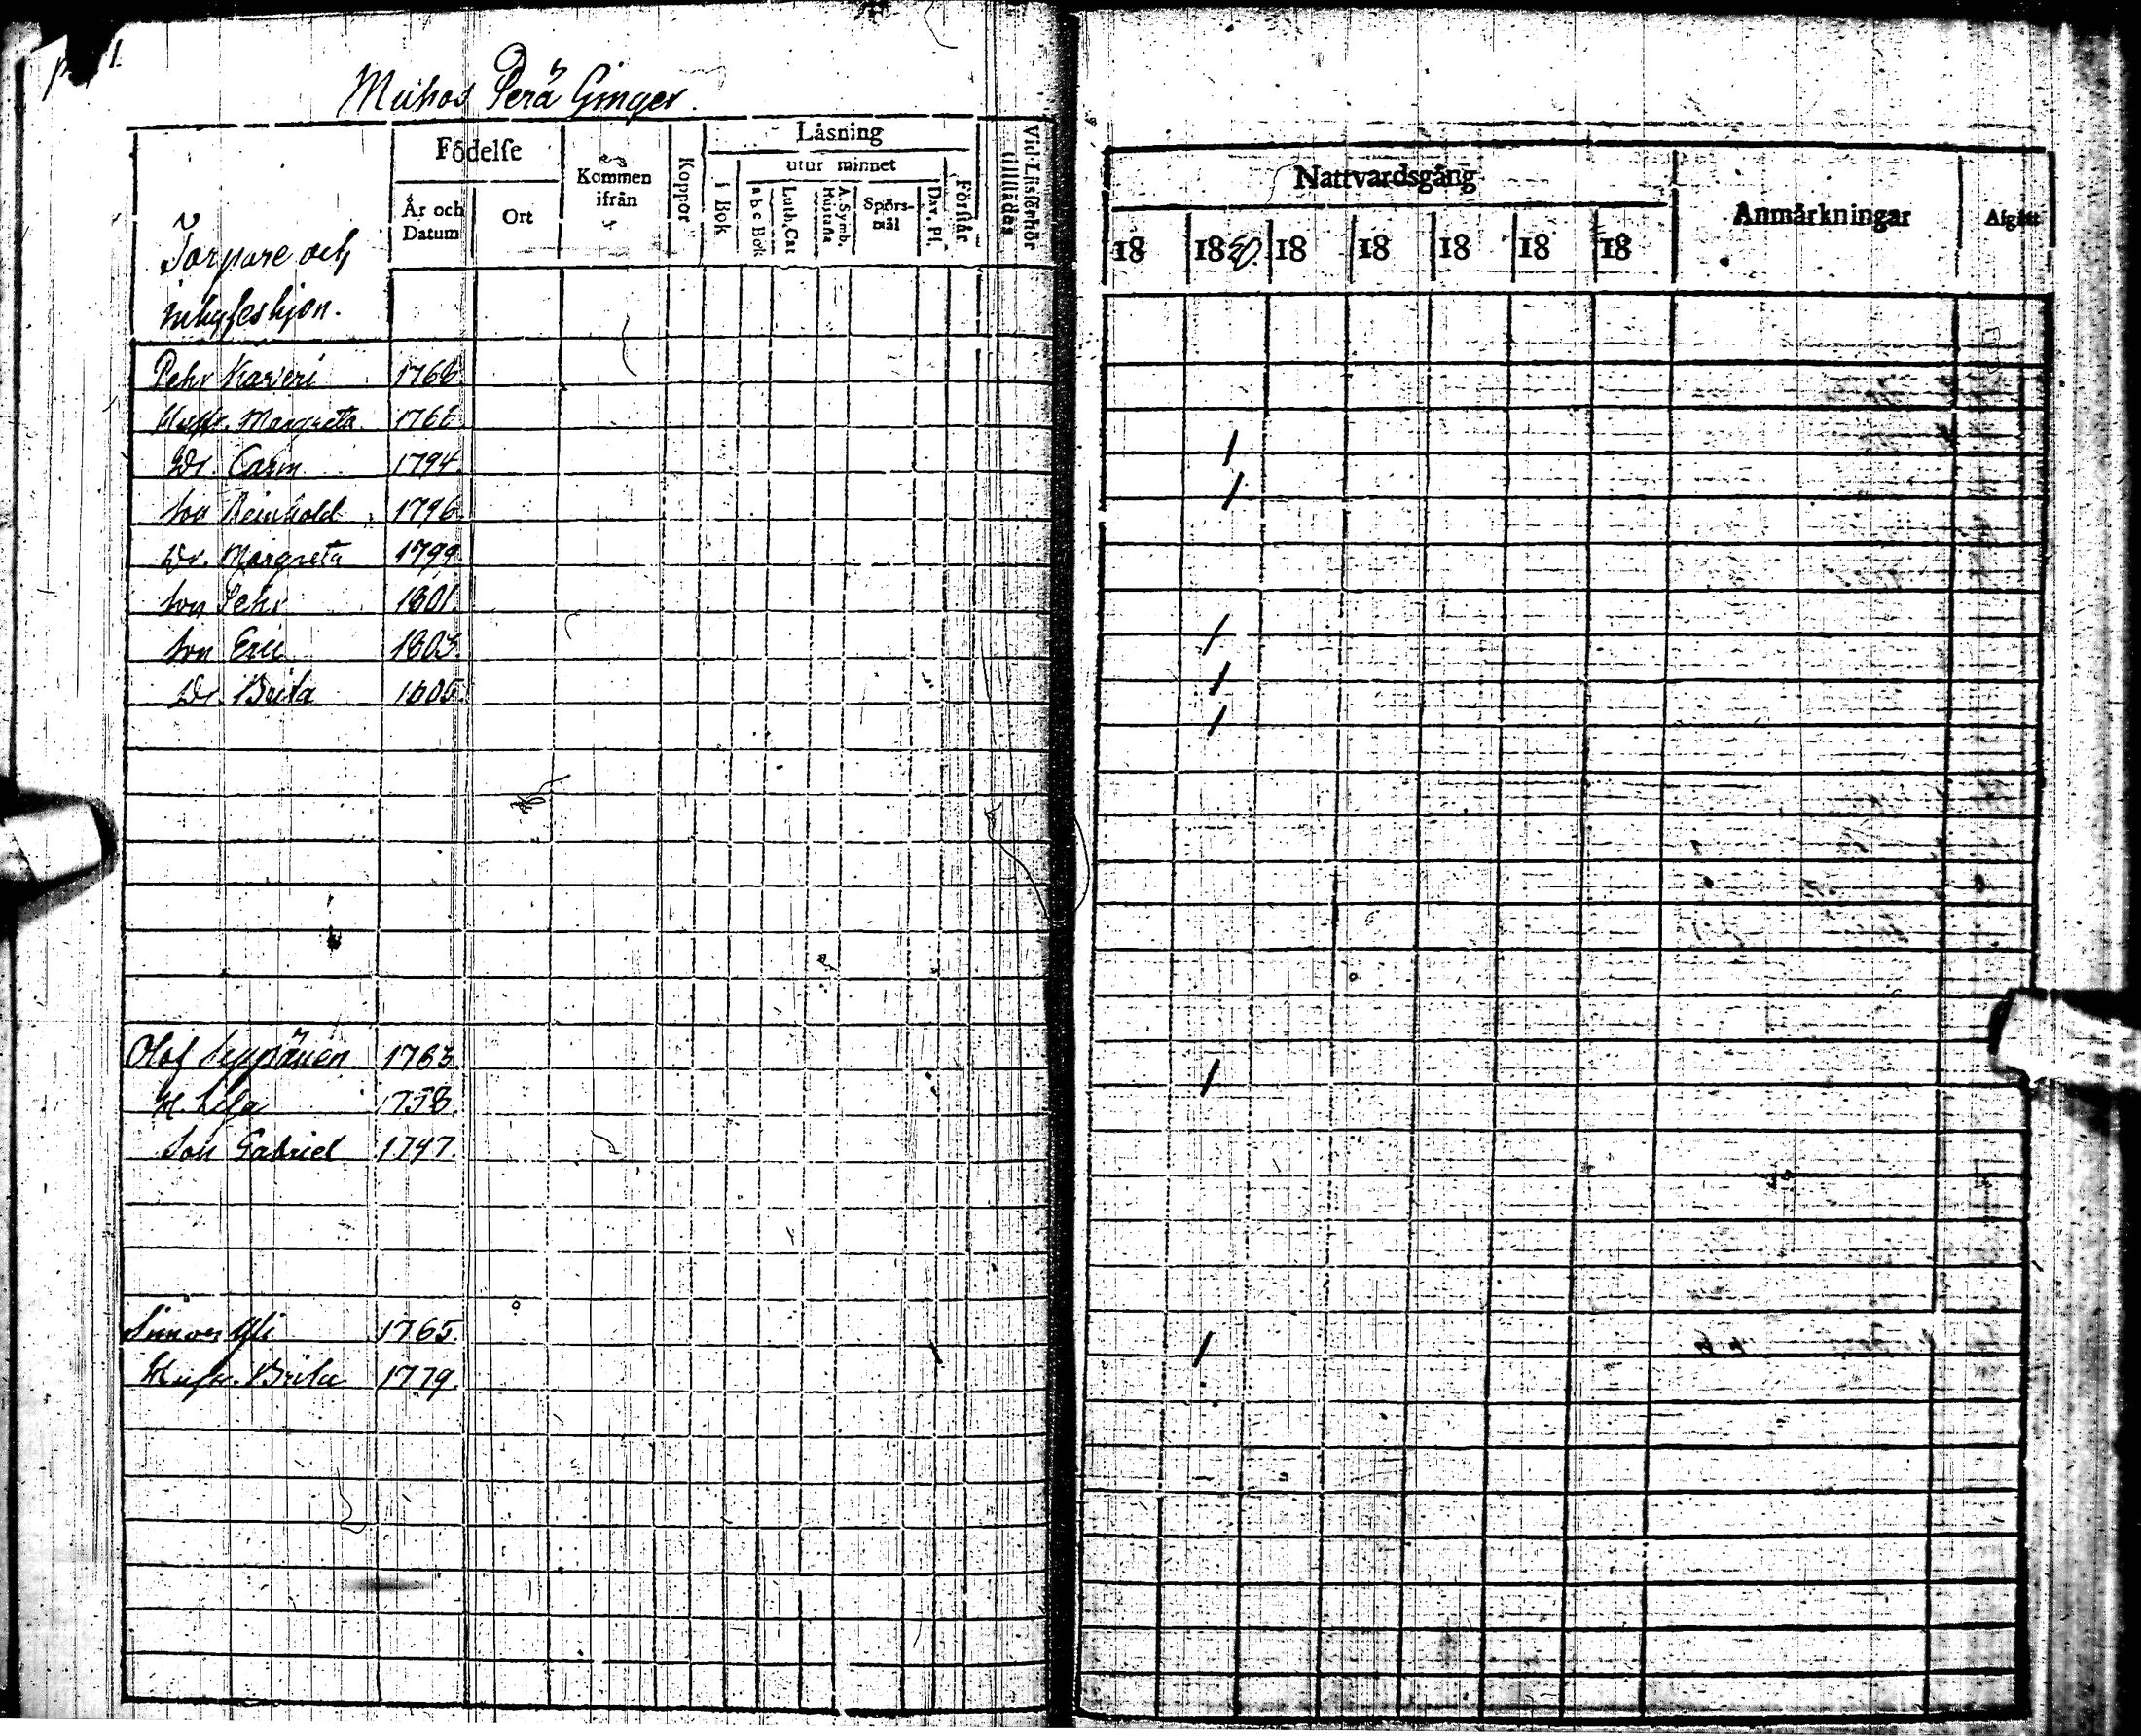 Muhos Perä Ginger.
Torpare och
inhyseshjon.
Födelse
År och Datum
Ort
Kommen ifrån
Koppor
Låsning
i Bok
utur minnet
a b c Bok
Luth. Cat
A. Symb. Hustafla
Spörsmål
Dav. Ps.
Förstår
Vid Läsförhör tillstädes
Nattvardsgång
18 1820. 18 18 18 18 18
Anmårkningar
Afgått
Pehr Karieri 1766.
Hustr. Margreta 1766.
Dr. Carin 1794.
Son Reinhold 1796.
Dr. Margreta 1799.
Son Pehr 1801.
Son Eric 1803.
Dr. Brita 1805.
Olof Seppänen 1763.
H. Lisa 1758.
Son Gabriel 1797.
Simon Yli 1765.
Hustr. Brita 1779.